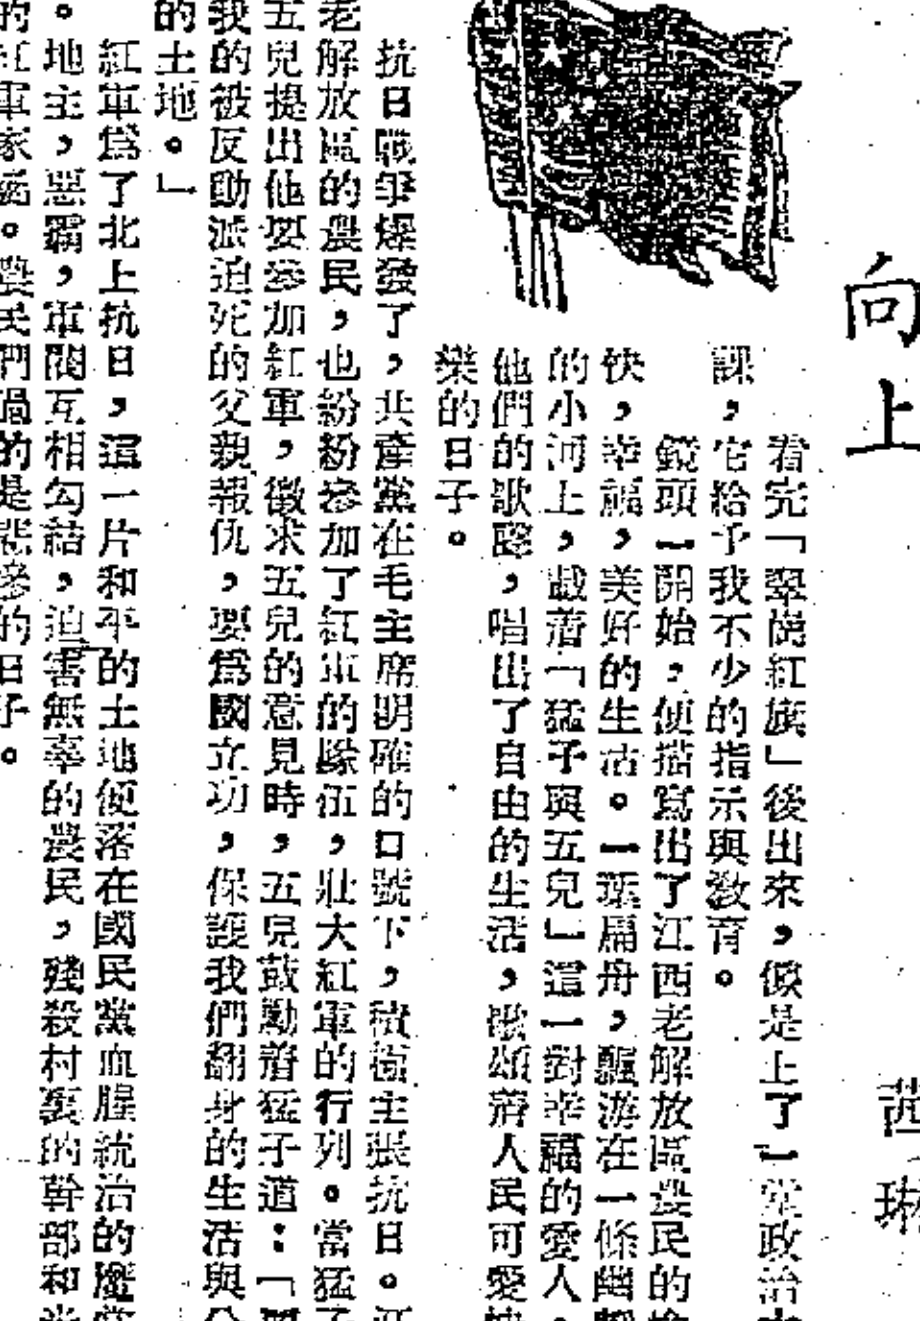 向上
茜琳
看完「翠崗紅旗」後出來，像是上了一堂政治
課，它給予我不少的指示與敎育。
鏡頭一開始，便描寫出了江西老解放區農民的
快，幸福，美好的生活。一葉扁舟，飄游在一條幽靜
的小河上，載着「猛子與五兒」這一對幸福的愛人，
他們的歌聲，唱出了自由的生活，歌頌着人民可愛快
樂的日子。
抗日戰爭爆發了，共產黨在毛主席明確的口號下，積極主張抗日。江
老解放區的農民，也紛紛參加了紅軍的隊伍，壯大紅軍的行列。當猛子
五兒提出他要參加紅軍，徵求五兒的意見時，五兒鼓勵着猛子道：「
我的被反動派迫死的父親報仇，要爲國立功，保護我們翻身的生活與
的土地。」
紅軍爲了北上抗日，這一片和平的土地便落在國民黨血腥統治的魔
。地主，惡霸，軍閥互相勾結，迫害無辜的農民，殘殺村裏的幹部和
的紅軍家屬。農民們過的是悲慘的日子。